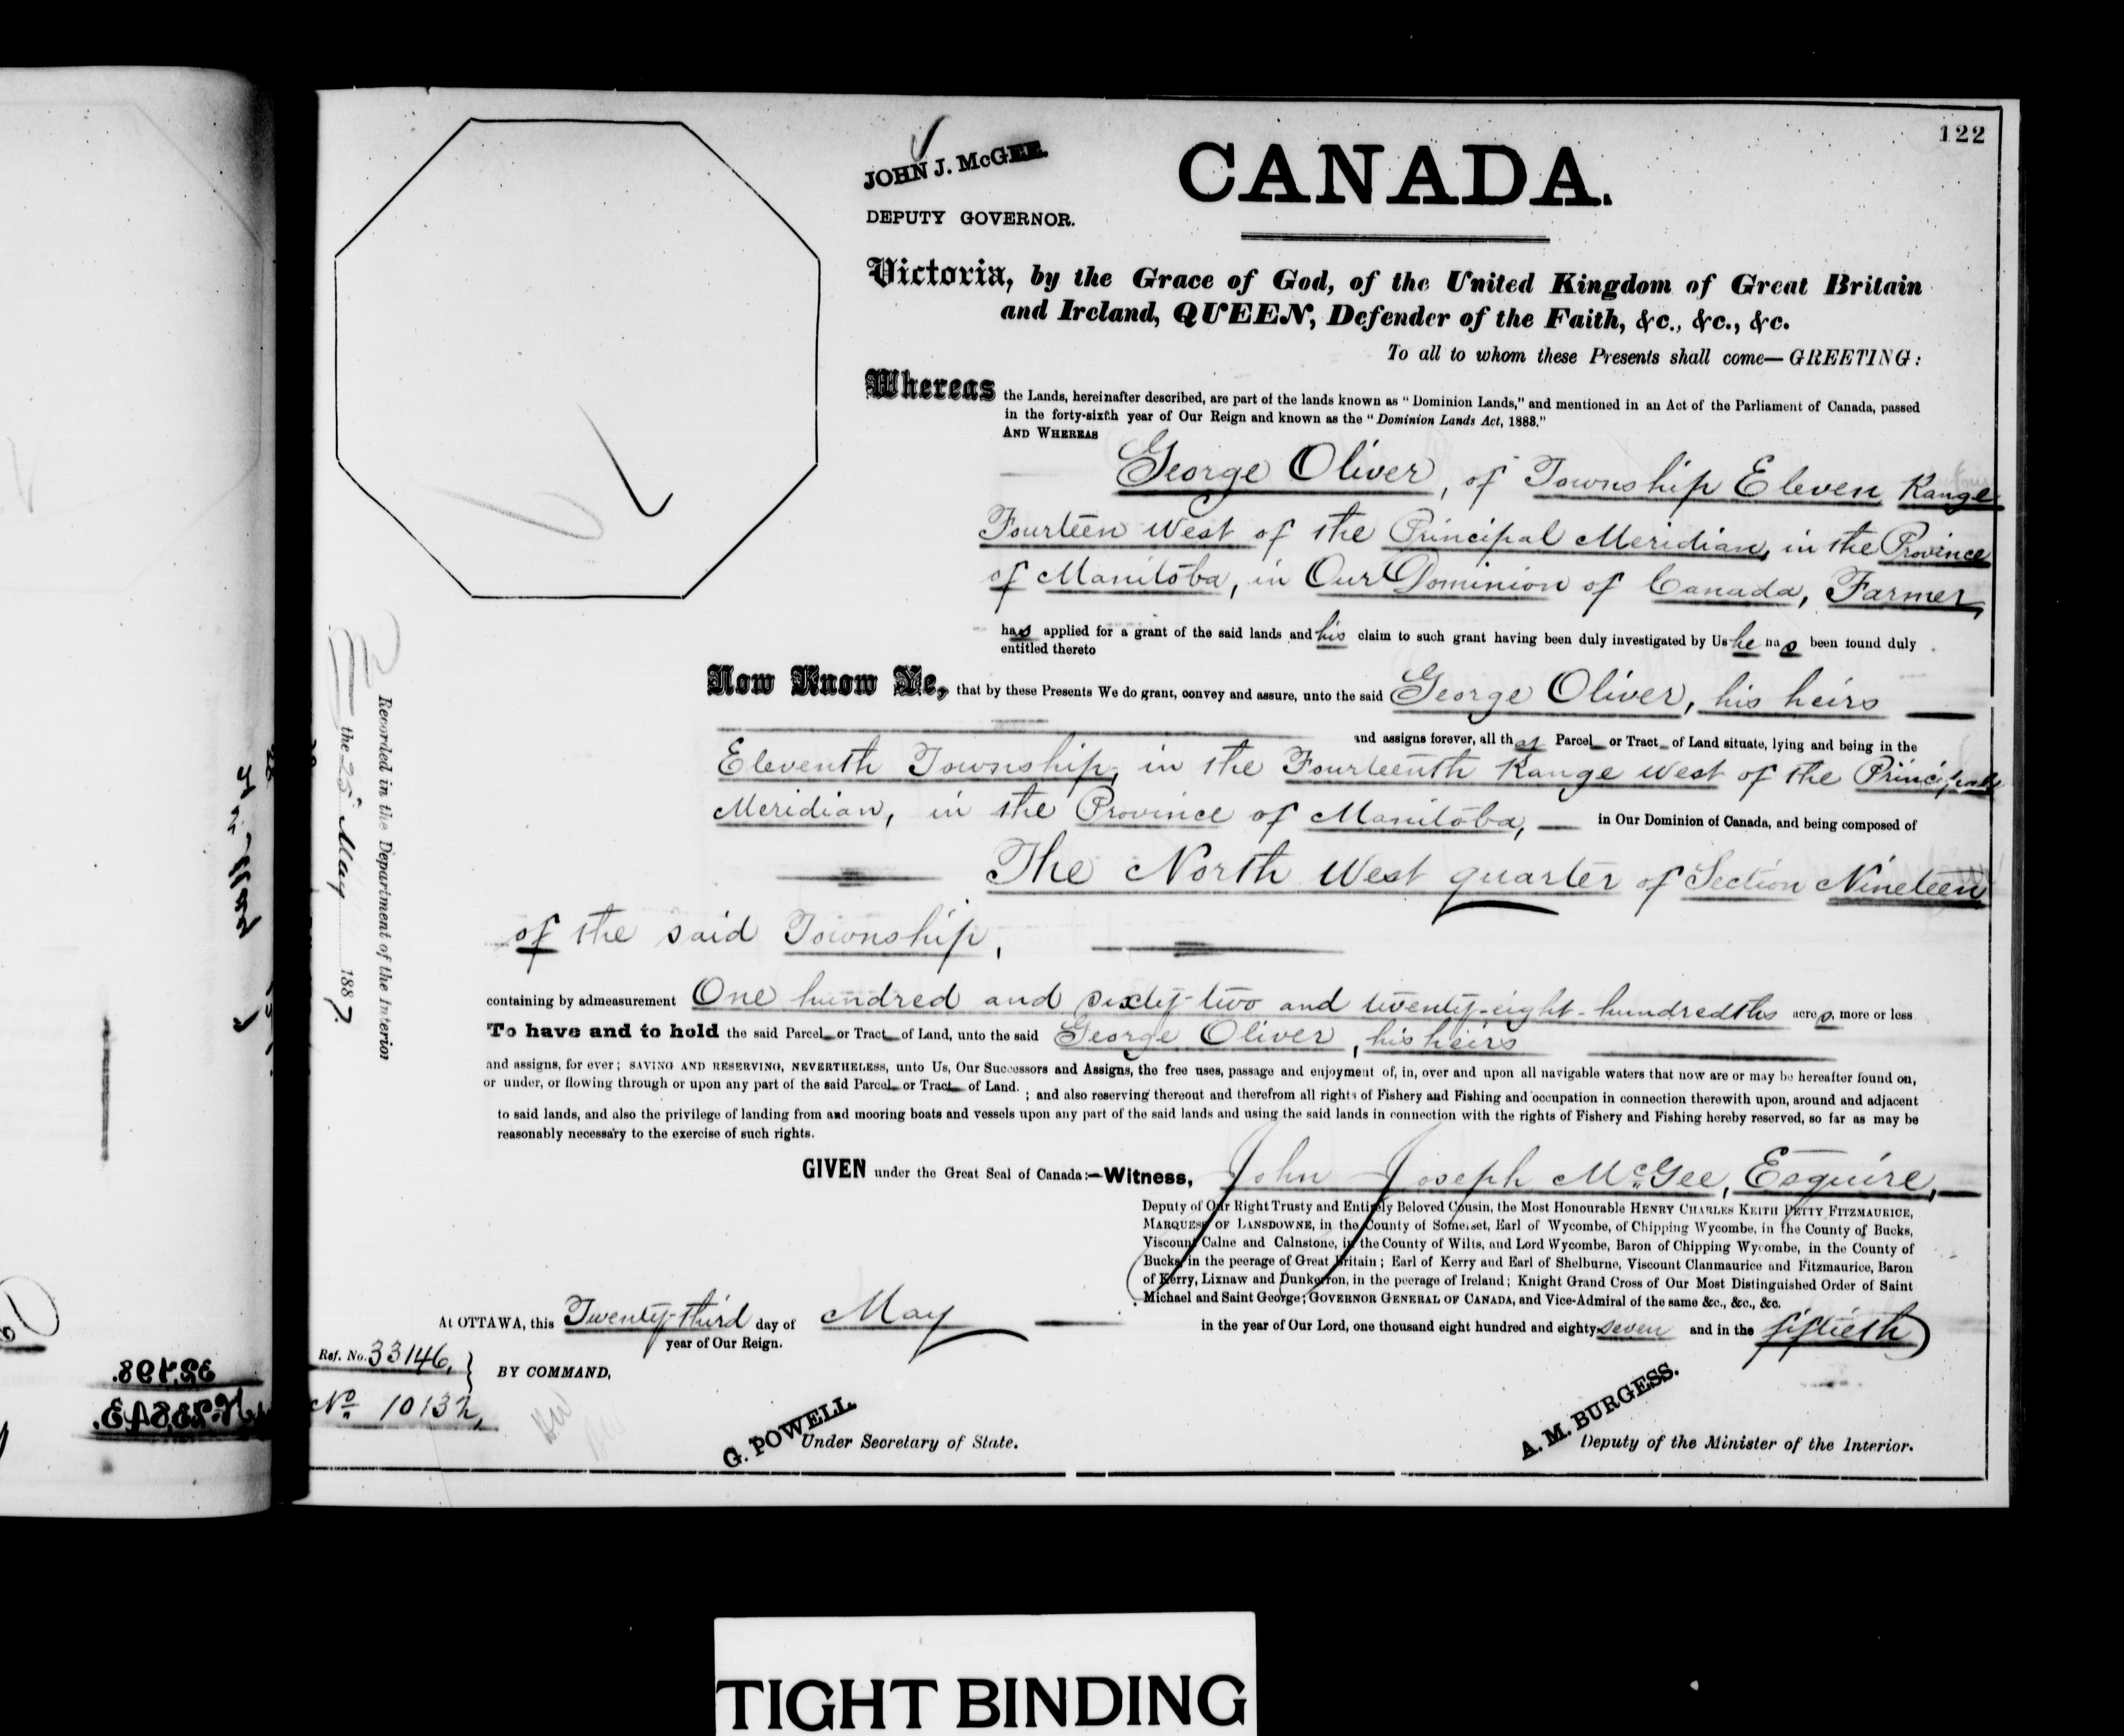 122
JOHN J. McGEE.
DEPUTY GOVERNOR.
CANADA.
Victoria, by the Grace of God, of the United Kingdom of Great Britain
and Ireland, QUEEN, Defender of the Faith, &c., &c., &c.
To all to whom these Presents shall come—GREETING:
Whereas the Lands, hereinafter described, are part of the lands known as "Dominion Lands," and mentioned in an Act of the Parliament of Canada, passed
in the forty-sixth year of Our Reign and known as the "Dominion Lands Act, 1888."
AND WHEREAS
George Oliver, of Township Eleven Range
Fourteen West of the Principal Meridian, in the Province
of Manitoba, in Our Dominion of Canada, Farmer,
has applied for a grant of the said lands and his claim to such grant having been duly investigated by Us he has been found duly
entitled thereto
Now Know Ye, that by these Presents We do grant, convey and assure, unto the said George Oliver, his heirs
and assigns forever, all that Parcel or Tract of Land situate, lying and being in the
Eleventh Township, in the Fourteenth Range West of the Principal
Meridian, in the Province of Manitoba, — in Our Dominion of Canada, and being composed of
The North West quarter of Section Nineteen
of the said Township,
containing by admeasurement One hundred and sixty-two and twenty-eight-hundredths acres more or less
To have and to hold the said Parcel or Tract of Land, unto the said George Oliver, his heirs
and assigns, for ever; SAVING AND RESERVING, NEVERTHELESS, unto Us, Our Successors and Assigns, the free uses, passage and enjoyment of, in, over and upon all navigable waters that now are or may be hereafter found on,
or under, or flowing through or upon any part of the said Parcel or Tract of Land.
; and also reserving thereout and therefrom all rights of Fishery and Fishing and occupation in connection therewith upon, around and adjacent
to said lands, and also the privilege of landing from and mooring boats and vessels upon any part of the said lands and using the said lands in connection with the rights of Fishery and Fishing hereby reserved, so far as may be
reasonably necessary to the exercise of such rights.
GIVEN under the Great Seal of Canada:—Witness, John Joseph McGee, Esquire,
Deputy of Our Right Trusty and Entirely Beloved Cousin, the Most Honourable HENRY CHARLES KEITH PETTY FITZMAURICE,
MARQUESS OF LANSDOWNE, in the County of Somerset, Earl of Wycombe, of Chipping Wycombe, in the County of Bucks,
Viscount Calne and Calnstone, in the County of Wilts, and Lord Wycombe, Baron of Chipping Wycombe, in the County of
Bucks, in the peerage of Great Britain; Earl of Kerry and Earl of Shelburne, Viscount Clanmaurice and Fitzmaurice, Baron
of Kerry, Lixnaw and Dunkerron, in the peerage of Ireland; Knight Grand Cross of Our Most Distinguished Order of Saint
Michael and Saint George; GOVERNOR GENERAL OF CANADA, and Vice-Admiral of the same &c., &c., &c.
At OTTAWA, this Twenty-third day of May in the year of Our Lord, one thousand eight hundred and eighty-seven and in the fiftieth
year of Our Reign.
Ref. No. 33146,
BY COMMAND,
No 10132,
G. POWELL.
Under Secretary of State.
A. M. BURGESS.
Deputy of the Minister of the Interior.
Recorded in the Department of the Interior
the 25 May 1887.
TIGHT BINDING